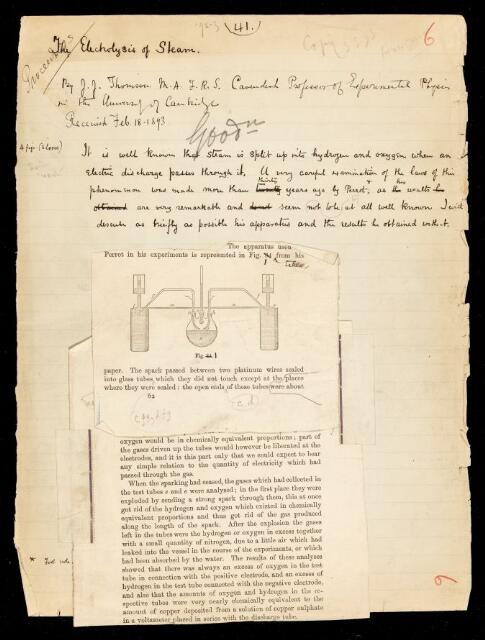 (41.)
6
Proceedings
The Electrolysis of Steam.
By J. J. Thomson M.A. F.R.S. Cavendish Professor of Experimental Physics
in the University of Cambridge
Received Feb. 18. 1893
It is well known that steam is split up into hydrogen and oxygen when an
electric discharge passes through it. A very careful examination of the laws of this
thirty
phenomenon was made more than twenty years ago by Perrot, as the results he
obtained are very remarkable and seem not to be at all well known I will
describe as briefly as possible his apparatus and the results he obtained with it.
The apparatus used
Perrot in his experiments is represented in Fig. 1 from his
Fig. 1
paper. The spark passed between two platinum wires sealed
into glass tubes, which they did not touch except at the places
where they were sealed: the open ends of these tubes were about
62
oxygen would be in chemically equivalent proportions; part of
the gases driven up the tubes would however be liberated at the
electrodes, and it is this part only that we could expect to bear
any simple relation to the quantity of electricity which had
passed through the gas.
When the sparking had ceased, the gases which had collected in
the test tubes e and e were analysed; in the first place they were
exploded by sending a strong spark through them, this at once
got rid of the hydrogen and oxygen which existed in chemically
equivalent proportions and thus got rid of the gas produced
along the length of the spark. After the explosion the gases
left in the tubes were the hydrogen or oxygen in excess together
with a small quantity of nitrogen, due to a little air which had
leaked into the vessel in the course of the experiments, or which
had been absorbed by the water. The results of these analyses
showed that there was always an excess of oxygen in the test
tube in connection with the positive electrode, and an excess of
hydrogen in the test tube connected with the negative electrode,
and also that the amounts of oxygen and hydrogen in the re-
spective tubes were very nearly chemically equivalent to the
amount of copper deposited from a solution of copper sulphate
in a voltameter placed in series with the discharge tube.